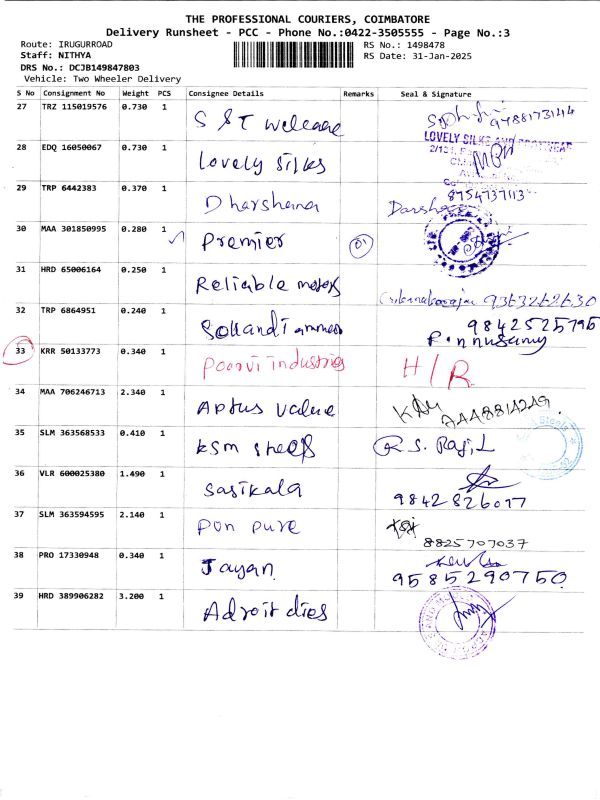 THE PROFESSIONAL COURIERS, COIMBATORE
Delivery Runsheet - PCC - Phone No.:0422-3505555 - Page No.:3
Route: IRUGURROAD
RS No.: 1498478
Staff: NITHYA
RS Date: 31-Jan-2025
DRS No.: DCJB149847803
Vehicle: Two Wheeler Delivery
S No Consignment No Weight PCS Consignee Details Remarks Seal & Signature
27 TRZ 115019576 0.730 1 S S T welcare 9788173144
28 EDQ 16050067 0.730 1 Lovely Silks LOVELY SILKS AND
29 TRP 6442383 0.370 1 Dharshana 8754737113
30 MAA 301850995 0.280 1 Premier 01
31 HRD 65006164 0.250 1 Reliable motors
32 TRP 6864951 0.240 1 9842525795
Ponnusamy
33 KRR 50133773 0.340 1 Poorvi industries H/R
34 MAA 706246713 2.340 1 Aptus value
35 SLM 363568533 0.410 1 KSM steels R.S. Raji.L
36 VLR 600025380 1.490 1 Sasikala
9842826077
37 SLM 363594595 2.140 1 Pon pure
8825707037
38 PRO 17330948 0.340 1 Jayan
9585290750
39 HRD 389906282 3.200 1 Adroit dies